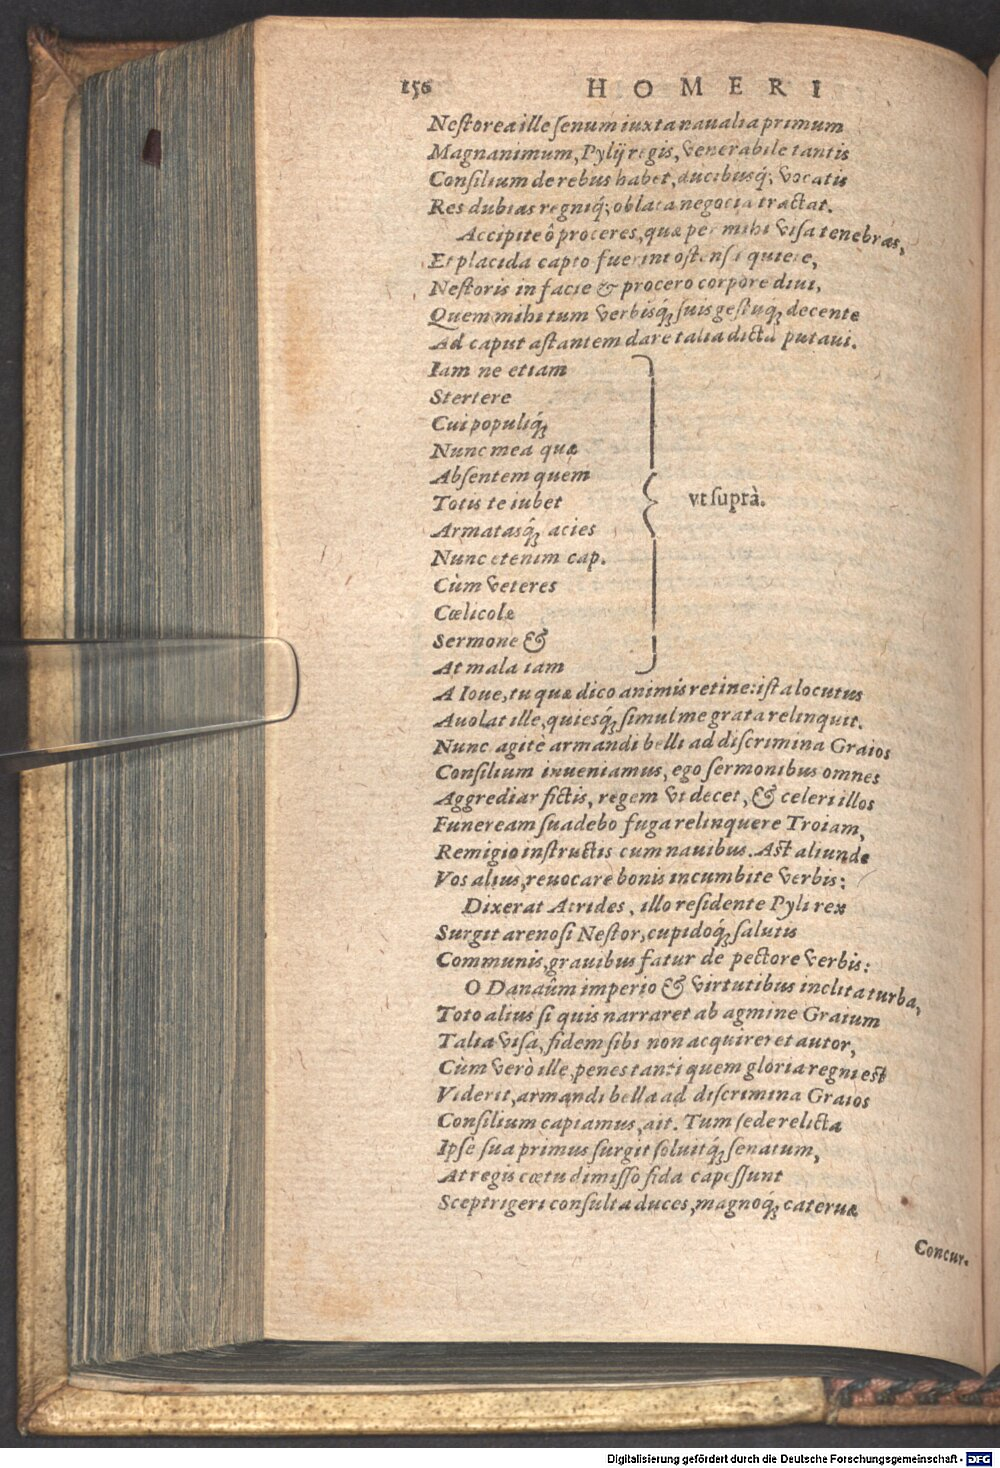 156 HOMERI
Nestorea ille senum iuxta naualia primum
Magnanimum, Pylij regis, venerabile tantis
Consilium de rebus habet, ducibusq́; vocatis
Res dubias regniq́; oblata negocia tractat.
Accipite ô proceres, quæ per mihi visa tenebras,
Et placida capto fuerint ostensa quiete,
Nestoris in facie & procero corpore diui,
Quem mihi tum verbisq́; suis gestuq́; decente
Ad caput astantem dare talia dicta putaui.
Iam ne etiam
Stertere
Cui populiq́;
Nunc mea quæ
Absentem quem
Totis te iubet
Armatasq́; acies
vt suprà.
Nunc etenim cap.
Cùm veteres
Cœlicolæ
Sermone &
At mala iam
A Ioue, tu quæ dico animis retine: ista locutus
Auolat ille, quiesq́; simul me grata relinquit.
Nunc agitè armandi belli ad discrimina Graios
Consilium inueniamus, ego sermonibus omnes
Aggrediar fictis, regem vt decet, & celeri illos
Funeream suadebo fuga relinquere Troiam,
Remigio instructis cum nauibus. Ast aliunde
Vos alius, reuocare bonis incumbite verbis:
Dixerat Atrides, illo residente Pyli rex
Surgit arenosi Nestor, cupidoq́; salutis
Communis, grauibus fatur de pectore verbis:
O Danaûm imperio & virtutibus inclita turba,
Toto alius si quis narraret ab agmine Graium
Talia visa, fidem sibi non acquireret autor,
Cùm verò ille, penes tanti quem gloria regni est
Viderit, armandi bella ad discrimina Graios
Consilium capiamus, ait. Tum sede relicta
Ipse sua primus surgit soluitq́; senatum,
At regis cœtu dimisso fida capessunt
Sceptrigeri consulta duces, magnoq́; cateruæ
Concur.
Digitalisierung gefördert durch die Deutsche Forschungsgemeinschaft - DFG